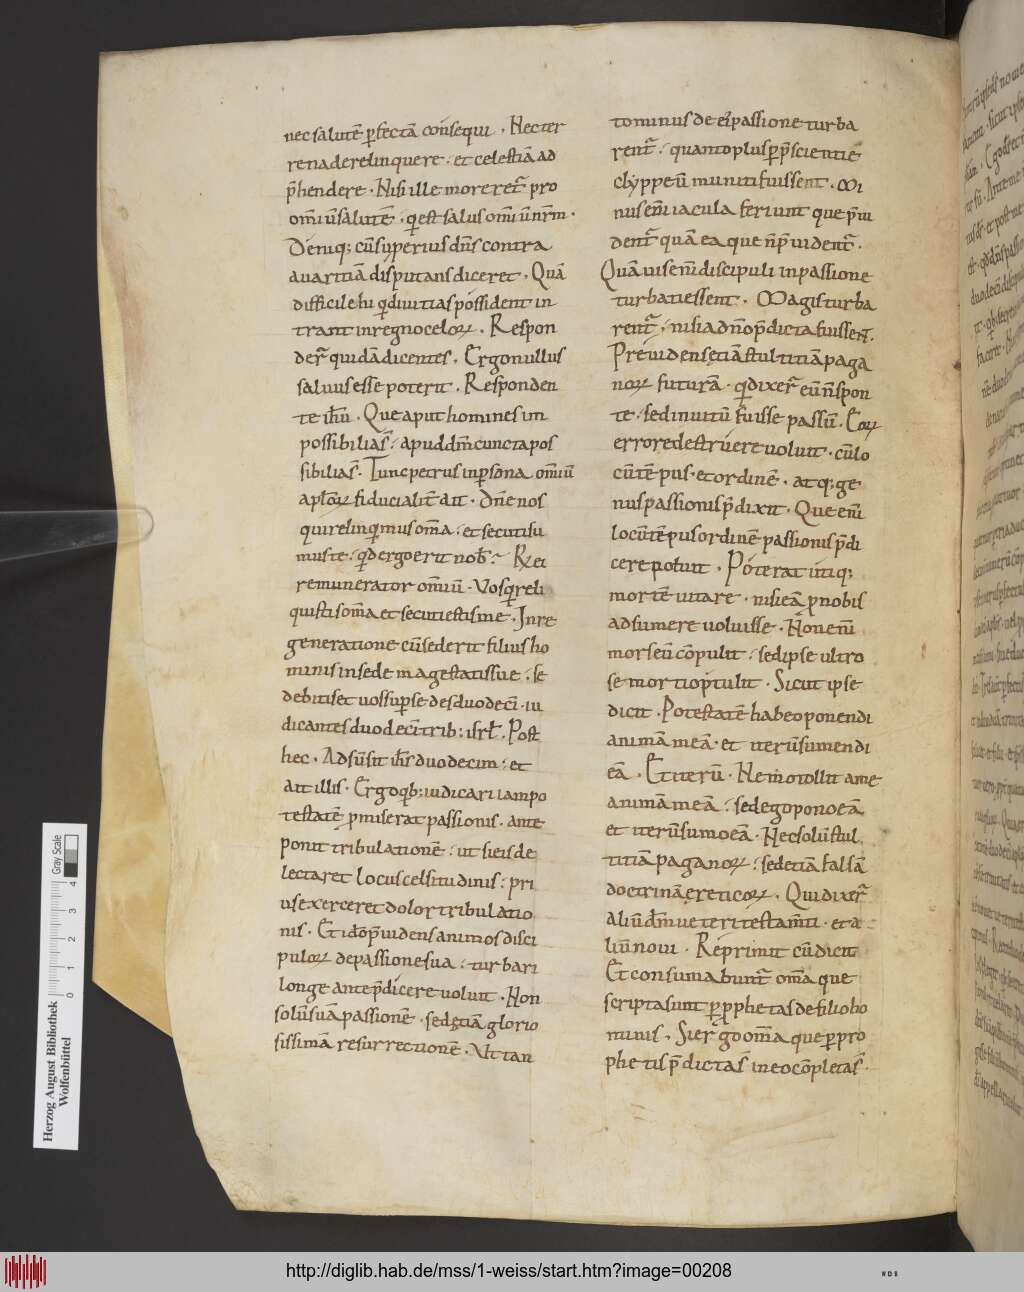 nec salutē ꝑfectā consequi . Nec ter
rena derelinquere . et celestiā ad
p̄hendere . Nisi ille moreret᷑ pro
om̄i ūsalutē . q̄ est salus om̄iū nr̄m .
Deniq; cū supe rius dn̄s contra
auaritiā disputans diceret . Quā
difficile hi q̄ diuitias possident in
trant in regno celoꝝ . Respon
der̄ quidā dicentes . Ergo nullus
saluus esse poterit . Responden
te ih̄u . Que aput homines in
possibilia s̄ : apud dm̄ cuncta pos
sibilia s̄ . Tunc petrus in ꝑsona om̄iū
aplōꝝ fiducialit̄ ait . Dn̄e nos
qui relinqimus om̄a : et secuti su
mus te : qd̄ ergo erit nob̄ : Rx ei
remunerator om̄iū . Vos q̄ reli
quistis om̄a et secuti estis me . In re
generatione cū sederit filius ho
minis in sede magestatis sue : se
debitis et uos suꝑ sedes duodeci . iu
dicantes duodeci trib; isrł . Post
hec . Adsūsit ih̄s duodecim : et
ait illis . Ergo qb; iudicari iam po
testatē ꝓmiserat passionis . ante
ponit tribulationē : ut si eis de
lectaret locus celsitudinis : pri
us exerceret dolor tribulatio
nis . Et idō p̄uidens animos disci
puloꝝ de passione sua : turbari
longe ante p̄dicere uoluit . Non
solū suā passionē . sed ętiā glorio
sissimā resurrectionē . Vt tan
to minus de ei᷒ passione turba
rent᷑ : quanto plus ꝑ p̄scientię
clyppeū muniti fuissent . Mi
nus em̄ iacula feriunt que p̄ui
dent᷑ quā ea que n̄ p̄uident᷑ .
Quāuis em̄ discipuli in passione
turbati essent . Magis turba
rent᷑ : nisi a dn̄o p̄dicta fuissent .
Preuidens ętiā stultitiā paga
noꝝ futurā . q̄ dixer̄ eū n̄ spon
te . sed inuitū fuisse passū . Eoꝝ
errorē destruere uoluit . cū lo
cū tēpus . et ordinē . atq; ge
nus passionis p̄dixit . Que em̄
locū tēpus ordinē passionis p̄di
cere potuit . Poterat utiq;
mortē uitare . nisi eā ꝓ nobis
adsumere uoluisse . Non em̄
mors eū cōpulit : sed ipse ultro
se morti optulit . Sicut ipse
dicit . Potestatē habeo ponendi
animā meā . et iterū sumendi
eā . Et iterū . Nemo tollit a me
animā meā : sed ego pono eā
et iterū sumo eā . Nec solū stul
titiā paganoꝝ : sed etiā falsā
doctrinā ereticoꝝ . Qui dixer̄
aliū dm̄ ueteri testam̄ti . et a
liū noui . Reprimit cū dicit
Et consumabunt᷑ om̄a que
scripta sunt ꝑ ꝓphetas de filio ho
minis . Si ergo om̄a que ꝑ pro
phetis p̄dicta s̄ in eo cōpleta s̄ .
Herzog August Bibliothek
Wolfenbüttel
Gray Scale
0 1 2 3 4
http://diglib.hab.de/mss/1-weiss/start.htm?image=00208